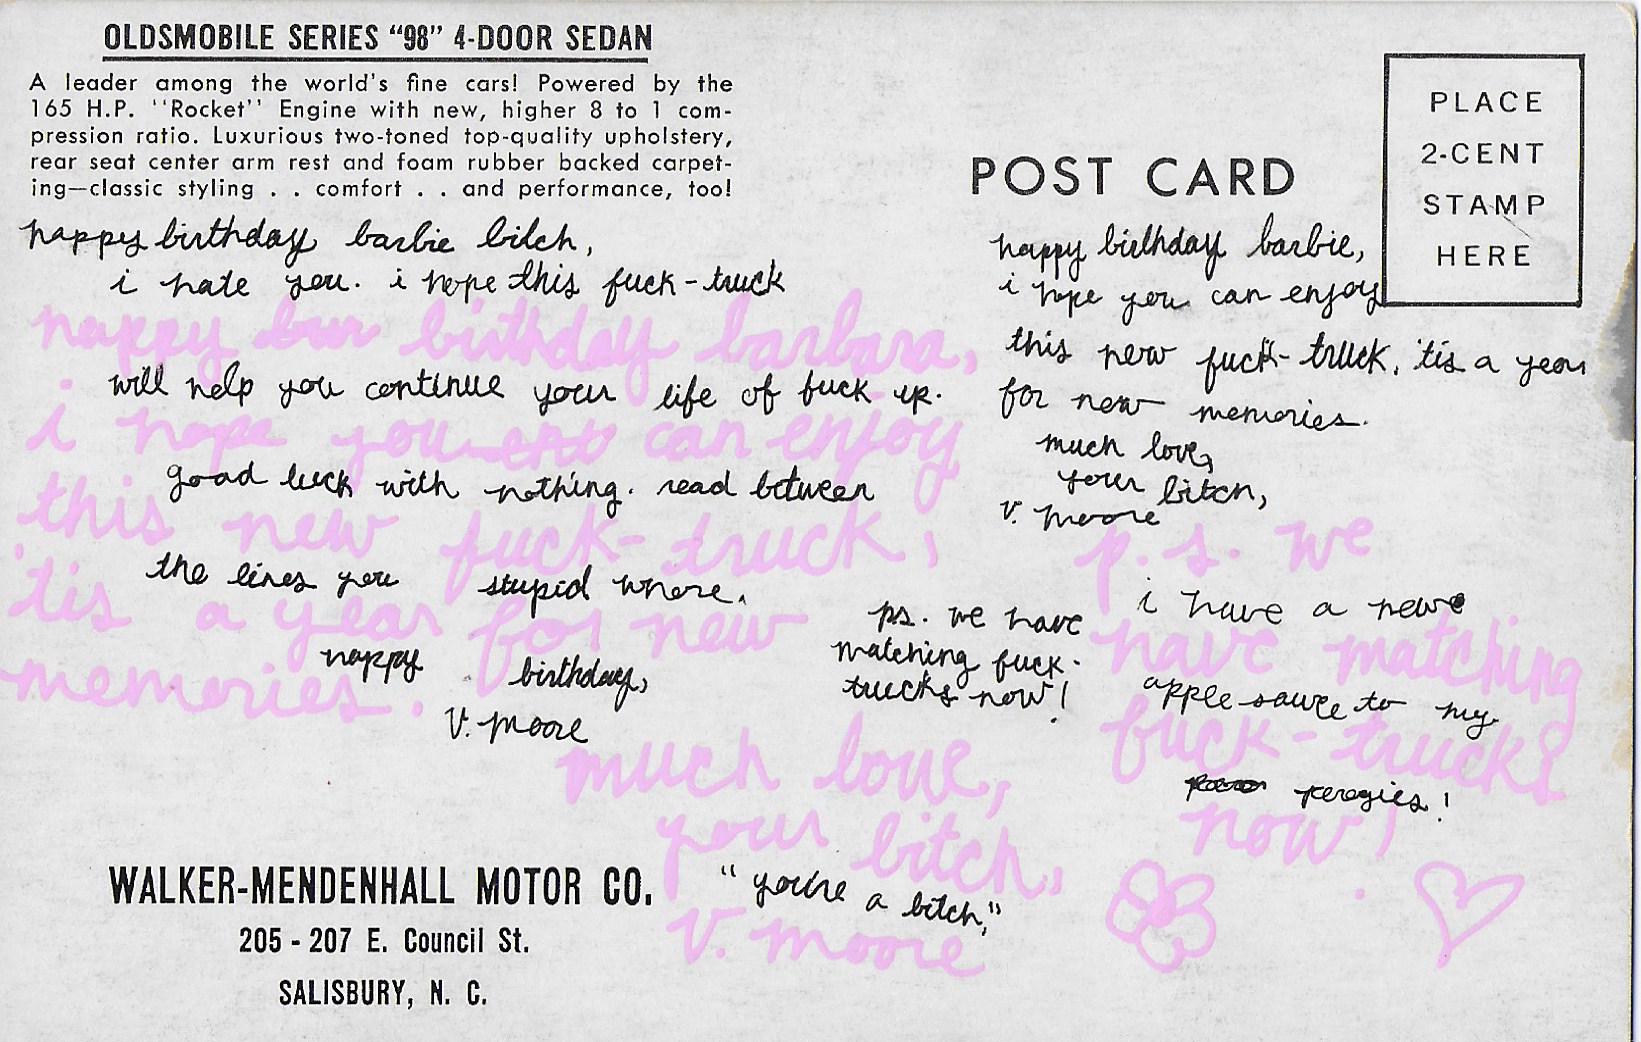 OLDSMOBILE SERIES “98” 4-DOOR SEDAN
A leader among the world's fine cars! Powered by the
165 H.P. "Rocket" Engine with new, higher 8 to 1 com-
pression ratio. Luxurious two-toned top-quality upholstery,
rear seat center arm rest and foam rubber backed carpet-
ing—classic styling . . comfort . . and performance, too!
POST CARD
PLACE
2-CENT
STAMP
HERE
happy birthday barbie bitch,
i hate you. i hope this fuck-truck
will help you continue your life of fuck up.
good luck with nothing. read between
the lines you stupid whore.
happy birthday,
V. Moore
happy birthday barbara,
i hope you can enjoy
this new fuck-truck,
'tis a year for new
memories.
much love,
your bitch,
V. Moore
happy birthday barbie,
i hope you can enjoy
this new fuck-truck, 'tis a year
for new memories.
much love,
your bitch,
V. Moore
ps. we have
matching fuck-
trucks now!
p.s. we
have matching
fuck-trucks
now!
i have a new
apple sauce to my
perogies!
"you're a bitch,"
WALKER-MENDENHALL MOTOR CO.
205 - 207 E. Council St.
SALISBURY, N. C.